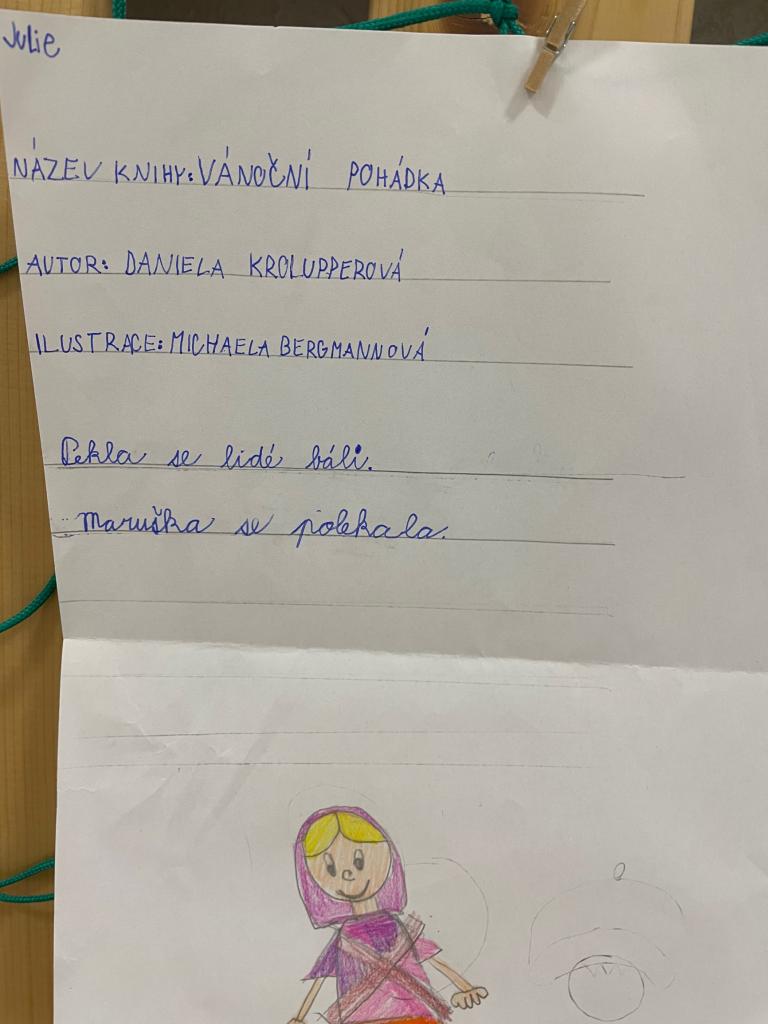 Julie
NÁZEV KNIHY: VÁNOČNÍ POHÁDKA
AUTOR: DANIELA KROLUPPEROVÁ
ILUSTRACE: MICHAELA BERGMANNOVÁ
Pekla se lidé báli.
Maruška se polekala.